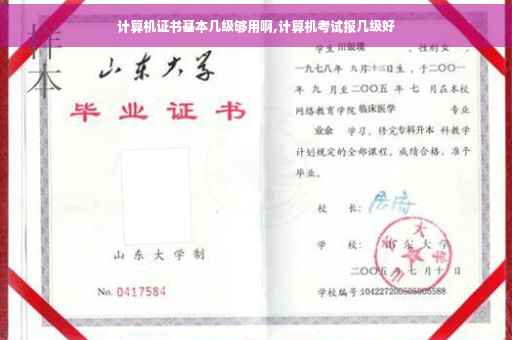 计算机证书基本几级够用啊,计算机考试报几级好
样本
山东大学
毕业证书
山东大学制
No. 0417584
学生 性别女,
一九七八年 九月十三日生,于二〇〇一
年 九 月至二〇〇五 年 七 月在本校
网络教育学院 临床医学 专业
业余 学习,修完专科升本 科教学
计划规定的全部课程,成绩合格,准予
毕业。
校 长:
学 校: 山东大学
二〇〇五 年 七 月 十 日
学校编号: